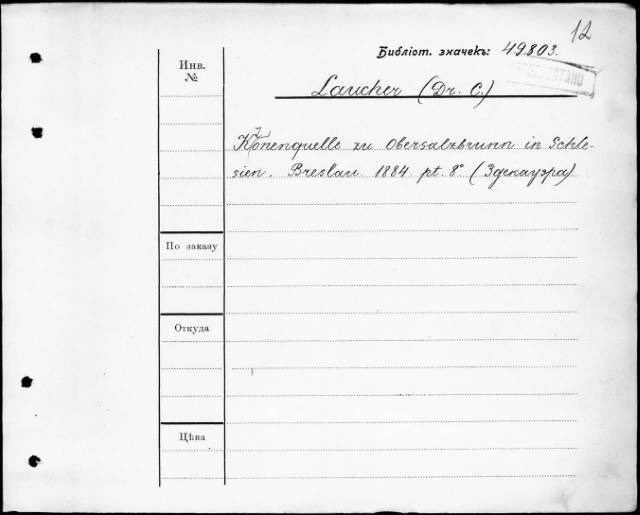 12
Библіот. значекъ: 49.803.
Инв.
№
Laucher (Dr. C.)
Kronenquelle zu Obersalzbrunn in Schle-
sien. Breslau. 1884. pt. 8° (Здекауэра)
По заказу
Откуда
Цѣна